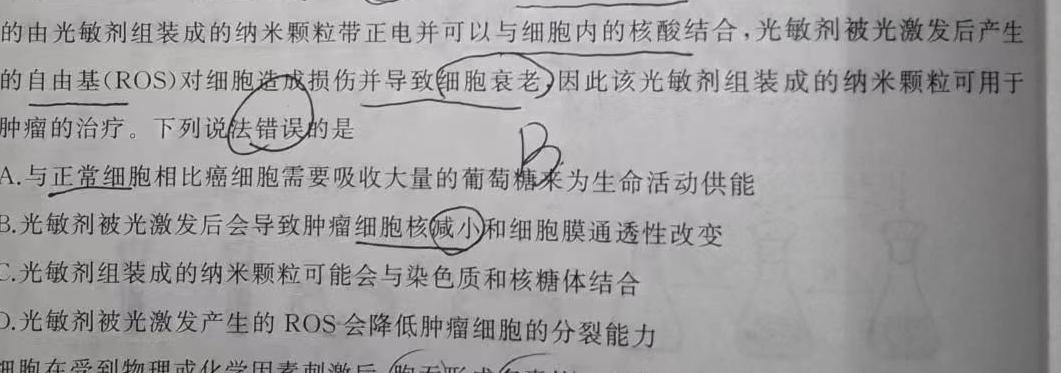 的由光敏剂组装成的纳米颗粒带正电并可以与细胞内的核酸结合,光敏剂被光激发后产生
的自由基(ROS)对细胞造成损伤并导致细胞衰老,因此该光敏剂组装成的纳米颗粒可用于
肿瘤的治疗。下列说法错误的是
B
A.与正常细胞相比癌细胞需要吸收大量的葡萄糖来为生命活动供能
B.光敏剂被光激发后会导致肿瘤细胞核减小和细胞膜通透性改变
C.光敏剂组装成的纳米颗粒可能会与染色质和核糖体结合
D.光敏剂被光激发产生的 ROS 会降低肿瘤细胞的分裂能力
细胞在受到物理或化学因素刺激后